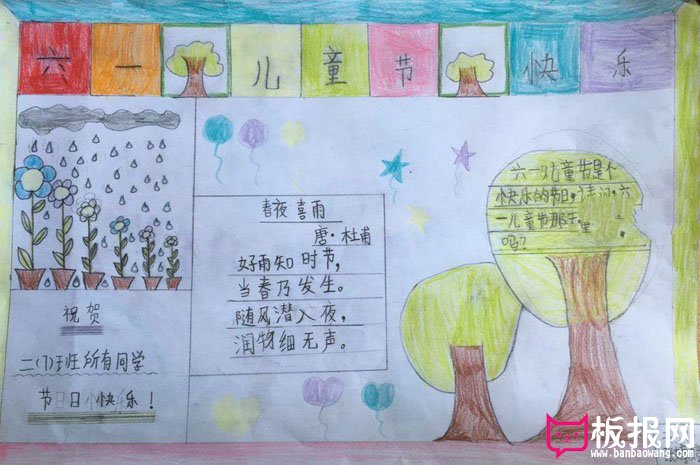 六一儿童节快乐
祝贺
二(7)班所有同学
节日快乐!
春夜喜雨
唐·杜甫
好雨知时节,
当春乃发生。
随风潜入夜,
润物细无声。
六一儿童节是个
快乐的节日,
六
一儿童节那天
里
吗?
板报网
www.banbaowang.com